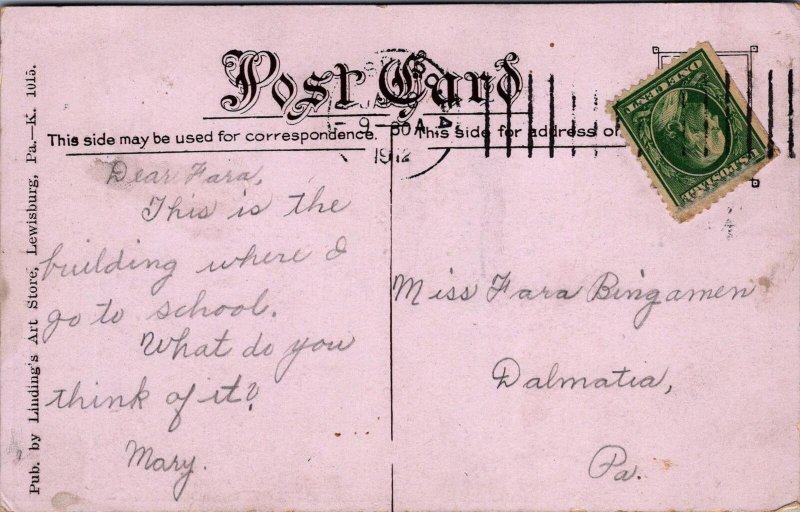 Post Card
9-30A
1912
This side may be used for correspondence.
This side for address
ONE CENT
U.S. POSTAGE
Pub. by Linding's Art Store, Lewisburg, Pa.—K. 1015.
Dear Fara,
This is the
building where I
go to school.
What do you
think of it?
Mary.
Miss Fara Bingamen
Dalmatia,
Pa.